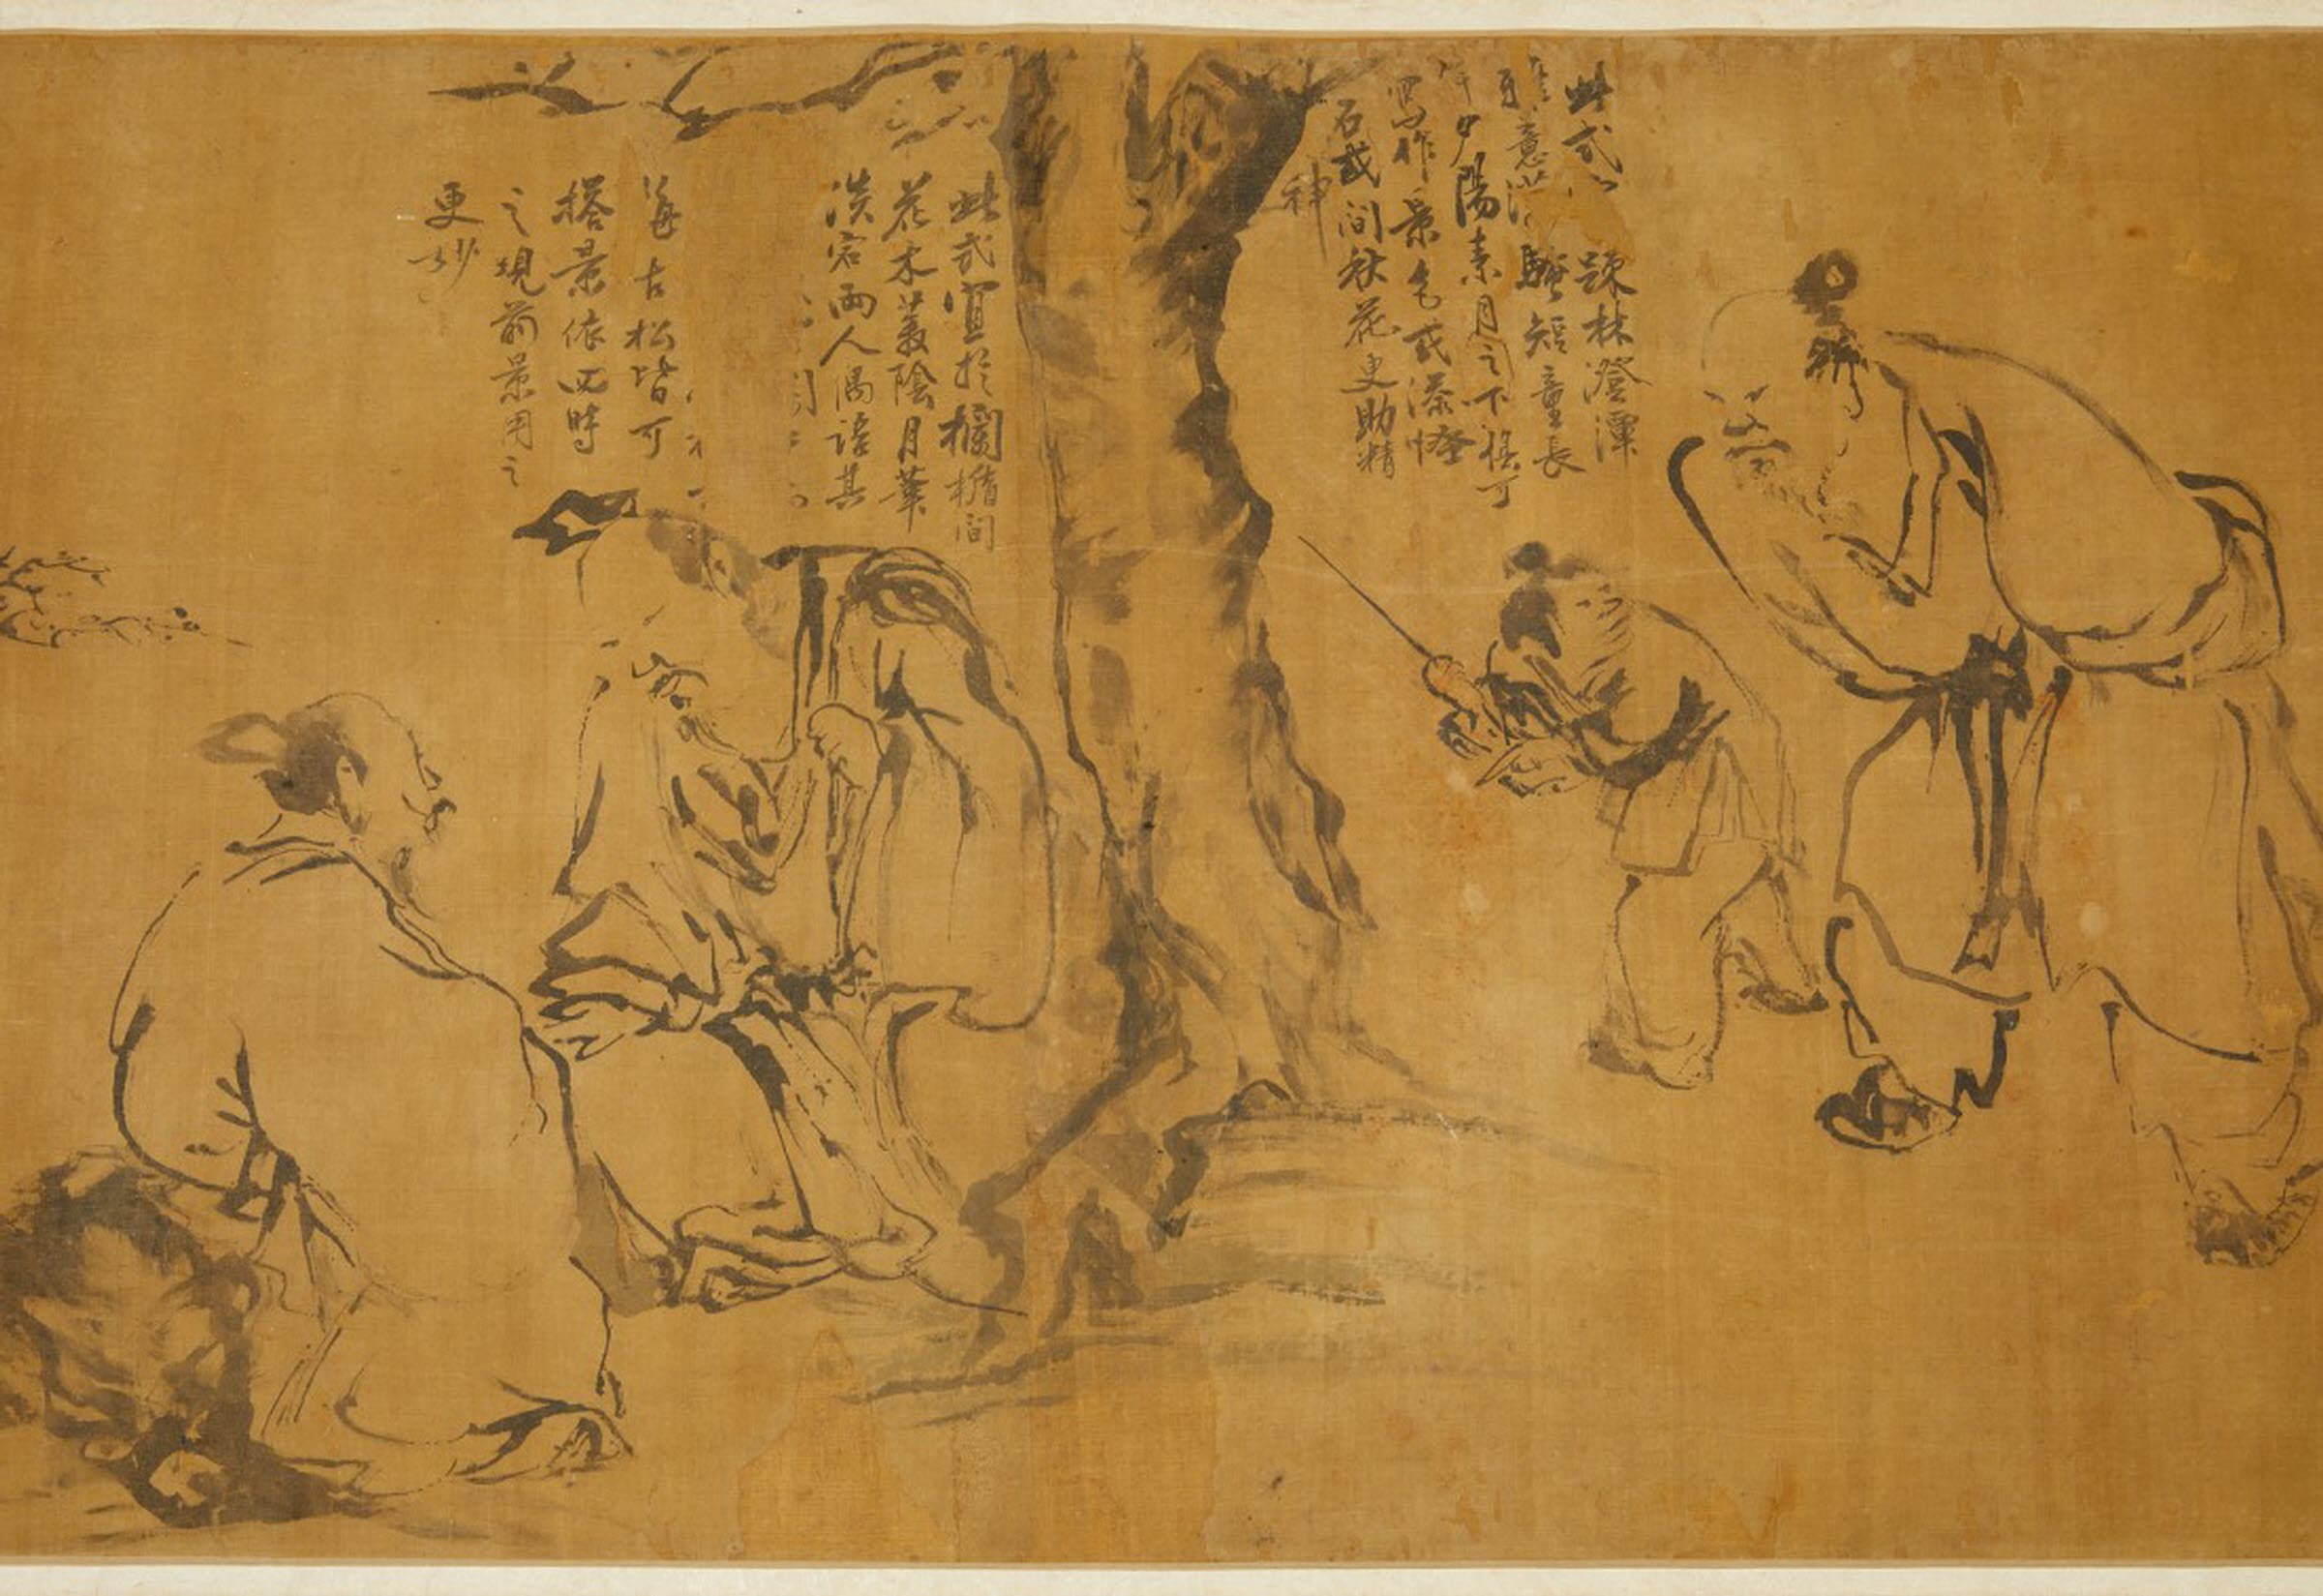 此式 疎林澄潭
意 驢短童長
夕陽素月之下俱可
寫作景色或添怪
石或間秋花更助精
神
此式宜於欄楯間
花木蓊陰月華
淡宕兩人偶語其
古松皆可
搭景依四時
之現前景用之
更妙